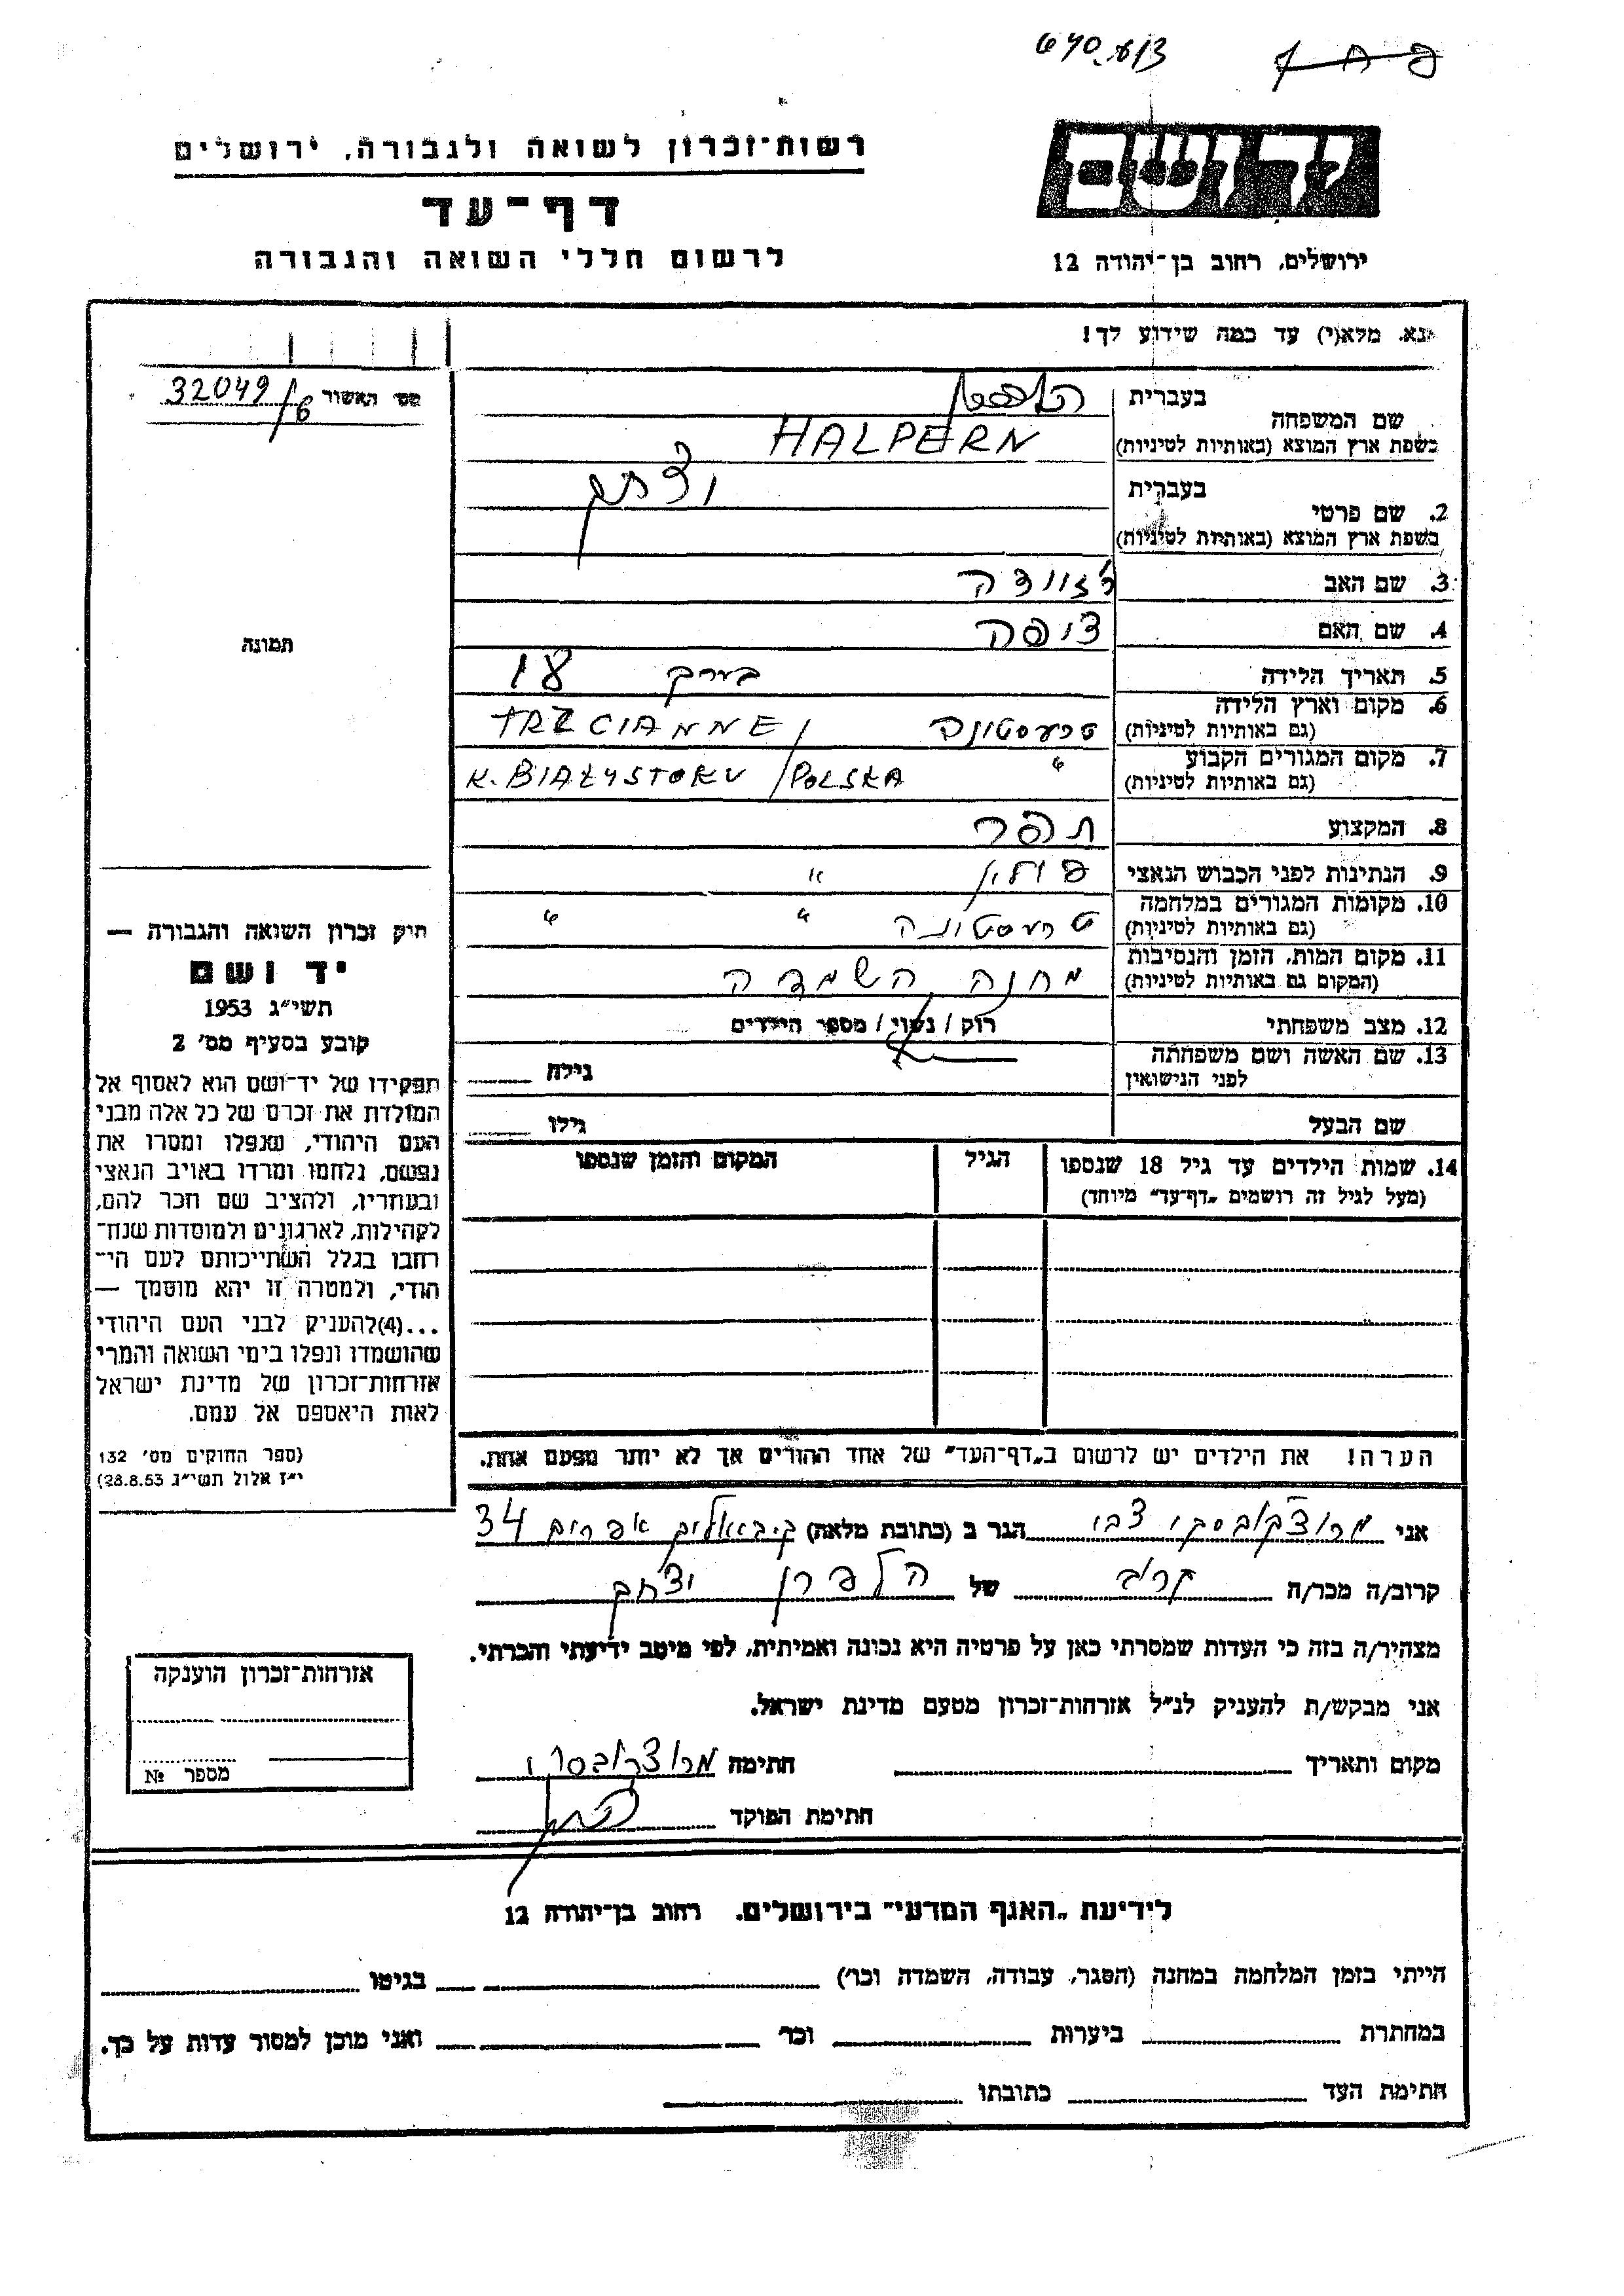 רשות־זכרון לשואה ולגבורה, ירושלים
דף־עד
לרשום חללי השואה והגבורה
יד ושם
ירושלים, רחוב בן־יהודה 12
נא. מלא(י) עד כמה שידוע לך!
מס׳ האשור 32049/6
שם המשפחה
בעברית הלפרן
בשפת ארץ המוצא (באותיות לטיניות) HALPERN
2. שם פרטי
בעברית יצחק
בשפת ארץ המוצא (באותיות לטיניות)
3. שם האב
4. שם האם ציפה
5. תאריך הלידה בערך 18
6. מקום וארץ הלידה
(גם באותיות לטיניות) טרעסטונה / TRZCIANNE
7. מקום המגורים הקבוע
(גם באותיות לטיניות) " K. BIAŁYSTOKU / POLSKA
8. המקצוע תפר
9. הנתינות לפני הכבוש הנאצי פולין "
10. מקומות המגורים במלחמה
(גם באותיות לטיניות) טרעסטונה " "
11. מקום המות, הזמן והנסיבות
(המקום גם באותיות לטיניות) מחנה השמדה
12. מצב משפחתי רוק / נשוי / מספר הילדים
13. שם האשה ושם משפחתה
לפני הנישואין גילה
שם הבעל גילו
14. שמות הילדים עד גיל 18 שנספו
(מעל לגיל זה רושמים „דף־עד" מיוחד)
הגיל
המקום והזמן שנספו
הערה! את הילדים יש לרשום ב„דף־העד" של אחד ההורים אך לא יותר מפעם אחת.
תמונה
חוק זכרון השואה והגבורה —
יד ושם
תשי״ג 1953
קובע בסעיף מס׳ 2
תפקידו של יד־ושם הוא לאסוף אל
המולדת את זכרם של כל אלה מבני
העם היהודי, שנפלו ומסרו את
נפשם, נלחמו ומרדו באויב הנאצי
ובעוזריו, ולהציב שם וזכר להם,
לקהילות, לארגונים ולמוסדות שנח־
רבו בגלל השתייכותם לעם הי־
הודי, ולמטרה זו יהא מוסמך —
...(4) להעניק לבני העם היהודי
שהושמדו ונפלו בימי השואה והמרי
אזרחות־זכרון של מדינת ישראל
לאות היאספם אל עמם.
(ספר החוקים מס׳ 132
י״ז אלול תשי״ג 28.8.53)
אני צבי הגר ב (כתובת מלאה) אפרים 34
קרוב/ה מכר/ה קרוב של הלפרן יצחק
מצהיר/ה בזה כי העדות שמסרתי כאן על פרטיה היא נכונה ואמיתית, לפי מיטב ידיעתי והכרתי.
אני מבקש/ת להעניק לנ״ל אזרחות־זכרון מטעם מדינת ישראל.
מקום ותאריך חתימה
חתימת הפוקד
אזרחות־זכרון הוענקה
מספר №
לידיעת „האגף המדעי" בירושלים. רחוב בן־יהודה 12
הייתי בזמן המלחמה במחנה (הסגר, עבודה, השמדה וכו׳) בגיטו
במחתרת ביערות וכו׳ ואני מוכן למסור עדות על כך.
חתימת העד כתובתו